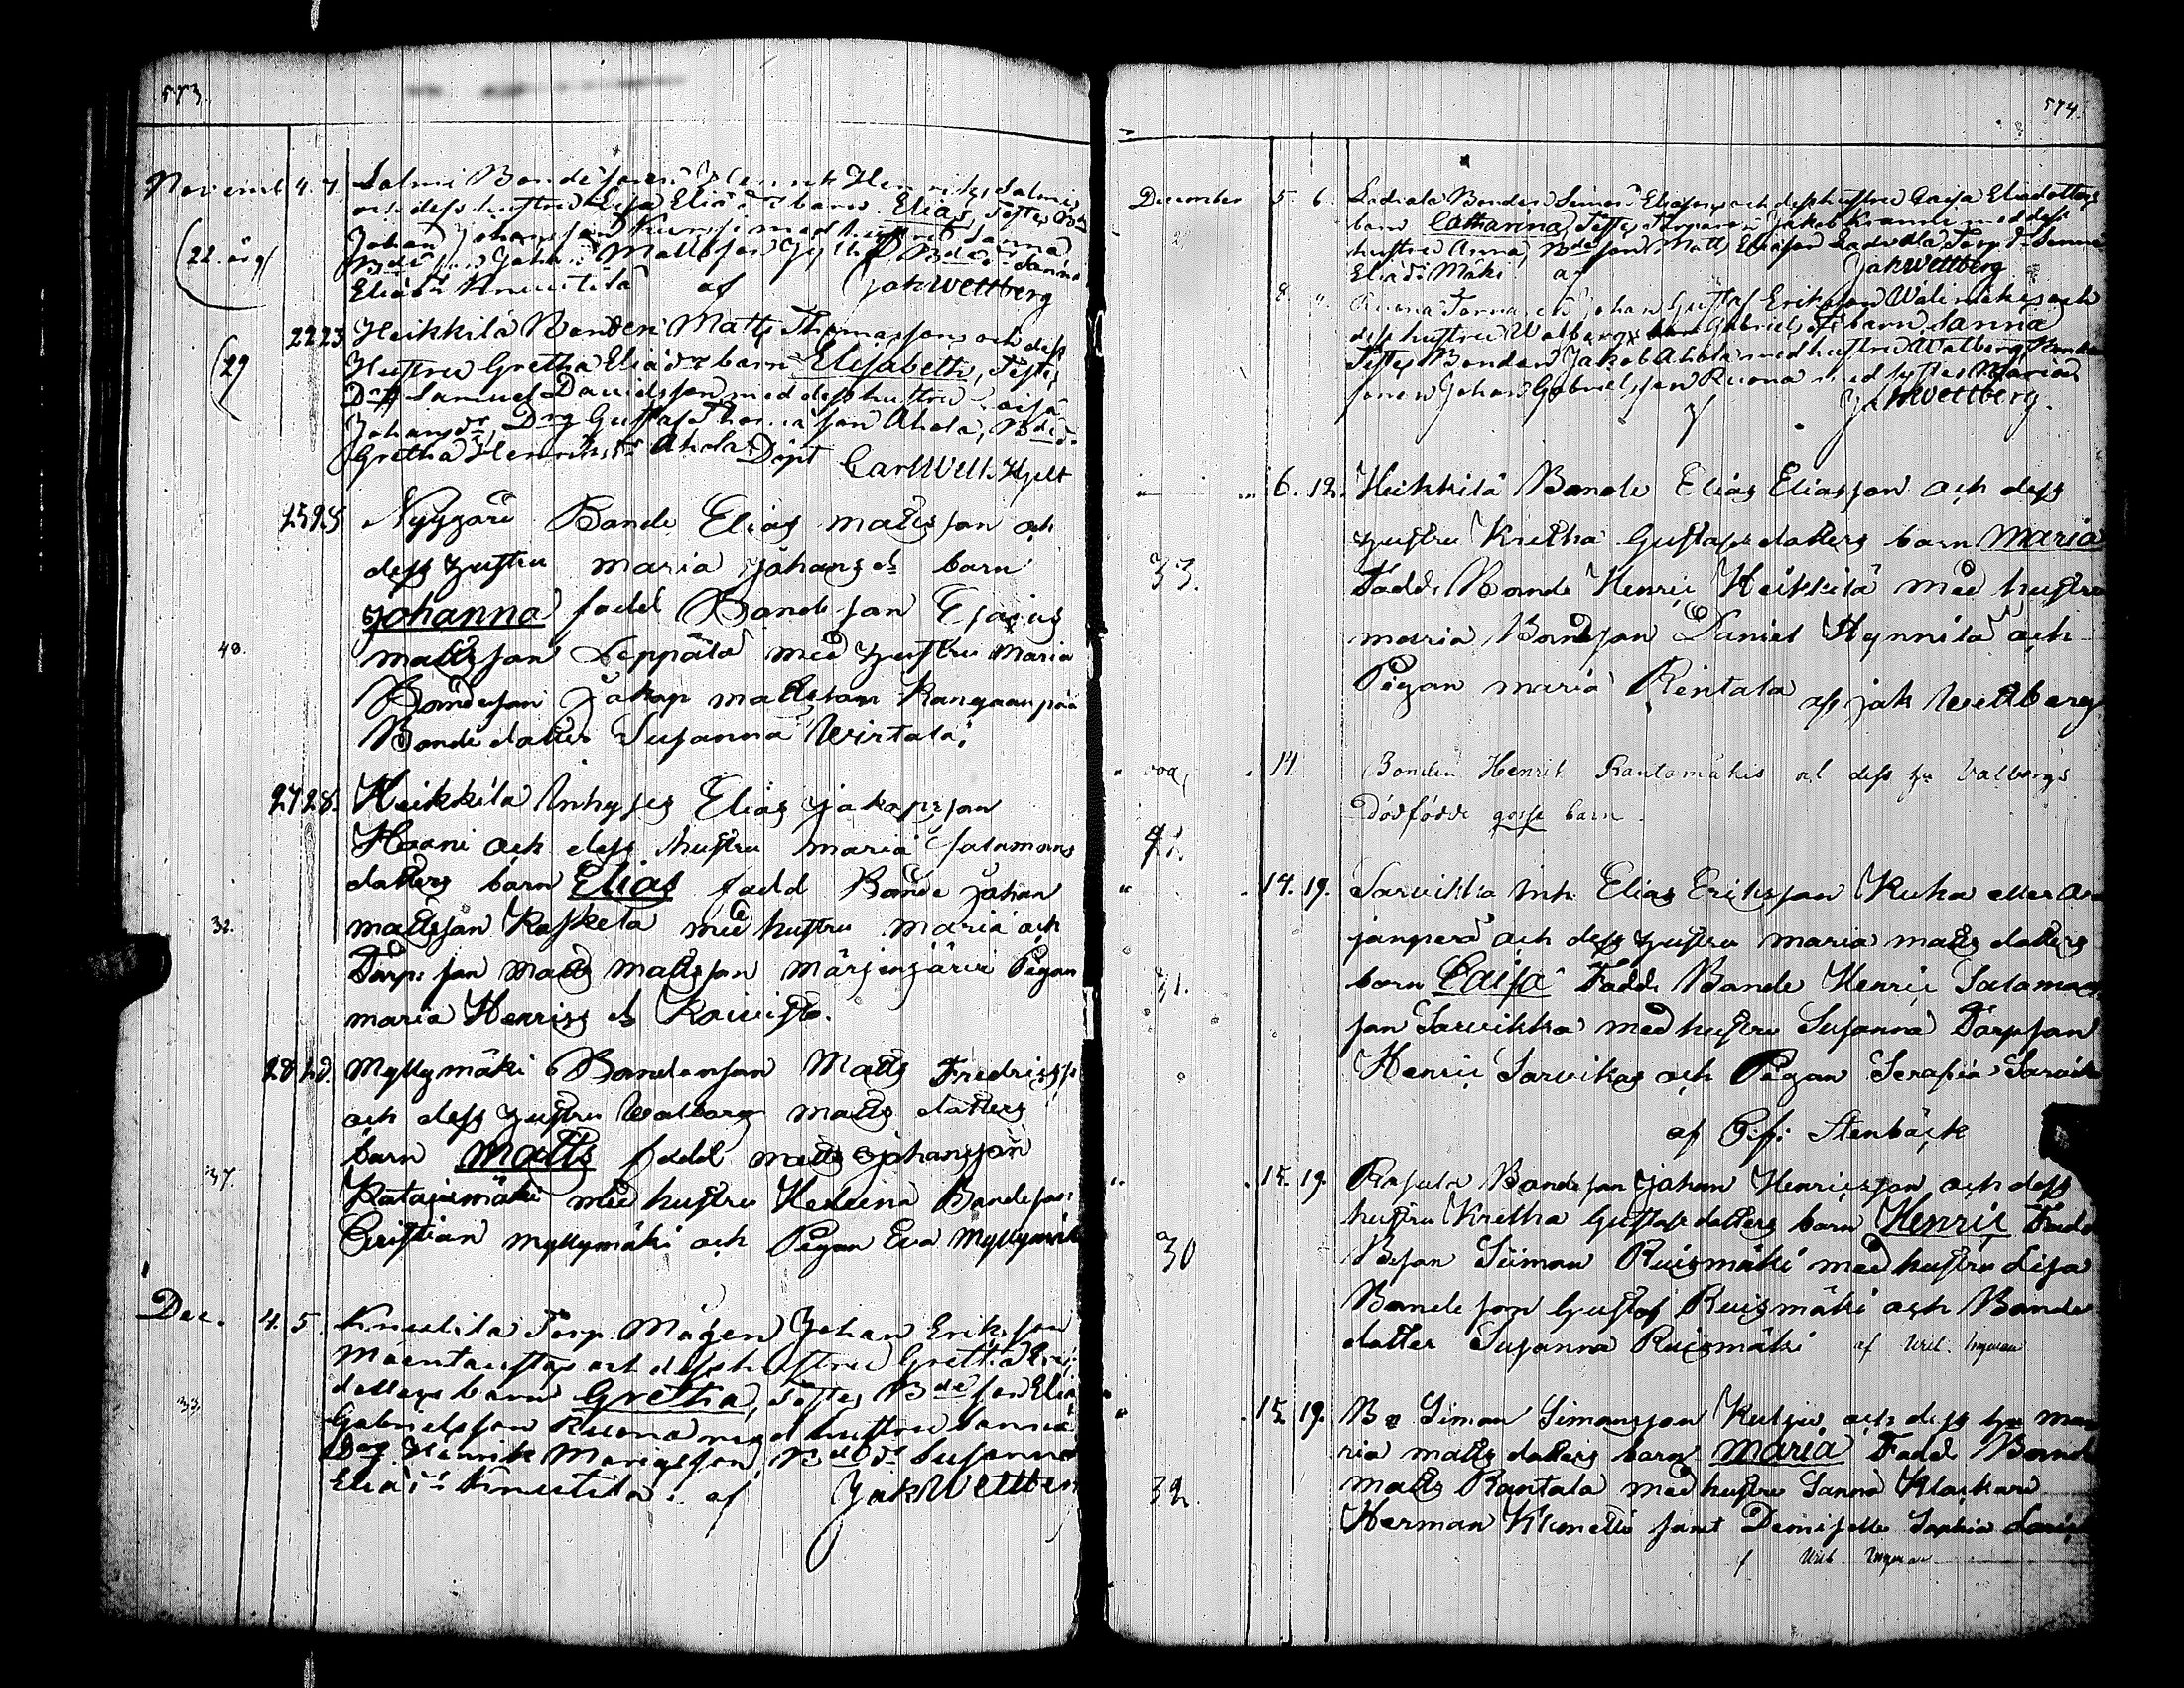 573.
Novemb 4. 7. Salmi Bondesonen Henrik Henriks: Salmi
och dess hustru Lisa Eliæ dr barn Elias, Testes Bde
Johan Johansson Kumpi med hustru Sanna
(22. årg) Bde son Johan Mattsson Bde dr Sanna
Eliæ dr Knuutila af Jak Wettberg
22 23 Heikkilä Bonden Matts Thomassons och dess
(29 Hustru Gretha Eliæ dr barn Elisabeth, Testes
Samuel Davidsson med dess hustru Caisa
Johans dr, Drg Gustaf Thomasson Ahola, Bde d
Gretha Henriks dr Ahola Dept Carl Wilh. Hjelt
25 25 Nyygård Bonde Elias matsson och
dess hustru maria johans dr barn
johanna fadd Bondeson Esaias
40. mattsson Leppälä med hustru Maria
Bondeson Jakap mattsson Kangaanpää
Bonde datter Susanna Wirtala.
27 28. Heikkilä Inhyses Elias jakapsson
Haani och dess hustru maria Salamans
datters barn Elias fadd Bonde Johan
32. mattsson Kasketa med hustru maria och
Torp: son Matts mattsson märjenjärvi Pigan
maria Henrigs dr Kowisto.
28 28. Myllymäki Bondenson Matts Fredrigss
och dess hustru Walborg matts datters
barn Matts fadd matts johansson
37. Katajamäki med hustru Hedvina Bondeson
Cristian myllymäki och Pigan Eva Myllymäki
Dec. 4. 5. Knuutila Torp. Mågen Johan Eriksson
Mäentausta och dess hustru Gretha
dotters barn Gretha, Testes Bde son Elia
33. Gabrielsson Ruona med hustru Sanna
Drg Henrik Mariæson, Bde dr Susanna
Eliæ dr Knuutila. af Jak Wettberg
574.
December 5. 6. Ladvala Bonden Simon Eliasson och dess hustru Caisa Eliædotters
barn Catharina, Testes Torparen Jakob Kranni med dess
hustru Anna, Bde son Matts Eliasson Ladvala Torp. dr Sanna
Eliæ dr Mäki af Jak Wettberg
8. Ruona Johan Gustaf Eriksson Wälimäkis och
dess hustru Walborg Gabriels dr barn Sanna
Testes Bonden Jakob Ahola med hustru Walborg, Bonden
sonen Johan Gabrielsson Ruona med syster Maria
af Jak Wettberg.
6. 12. Heikkilä Bonde Elias Eliasson och dess
hustru Kretha Gustafs datters barn Maria
33. Fadd. Bonde Henric Heikkilä med hustru
maria Bondson Daniel Hynnilä och
Pigan maria Rintala af jak Wettberg
14 Bonden Henrik Rantamäkis ol dess hu Valborgs
Dödfödde gosse barn.
42.
14. 19. Sarvikka Inh. Elias Eriksson Kuha eller
janperä och dess hustru maria matts datters
31. barn Caisa Fadd. Bonde Henric Salamans
son Sarvikka med hustru Susanna Torpson
Henric Sarvikas och Pigan Serafia Sarvik
af Stenbäck
15. 19. Rasula Bondeson Johan Henricsson och dess
hustru Kretha Gustafs datters barn Henric Fadd
30 B. son Siimon Ruismäki med hustru Lisa
Bondeson Gustaf Ruismäki och Bonde
datter Susanna Ruismäki af
15. 19. B Simon Simonsson Kutsu och dess hu ma
ria matts datters barn maria Fadd Bonde
32. matts Rantala med hustru Sanna Klackare
Herman Klemetti samt Demiselle Sophia